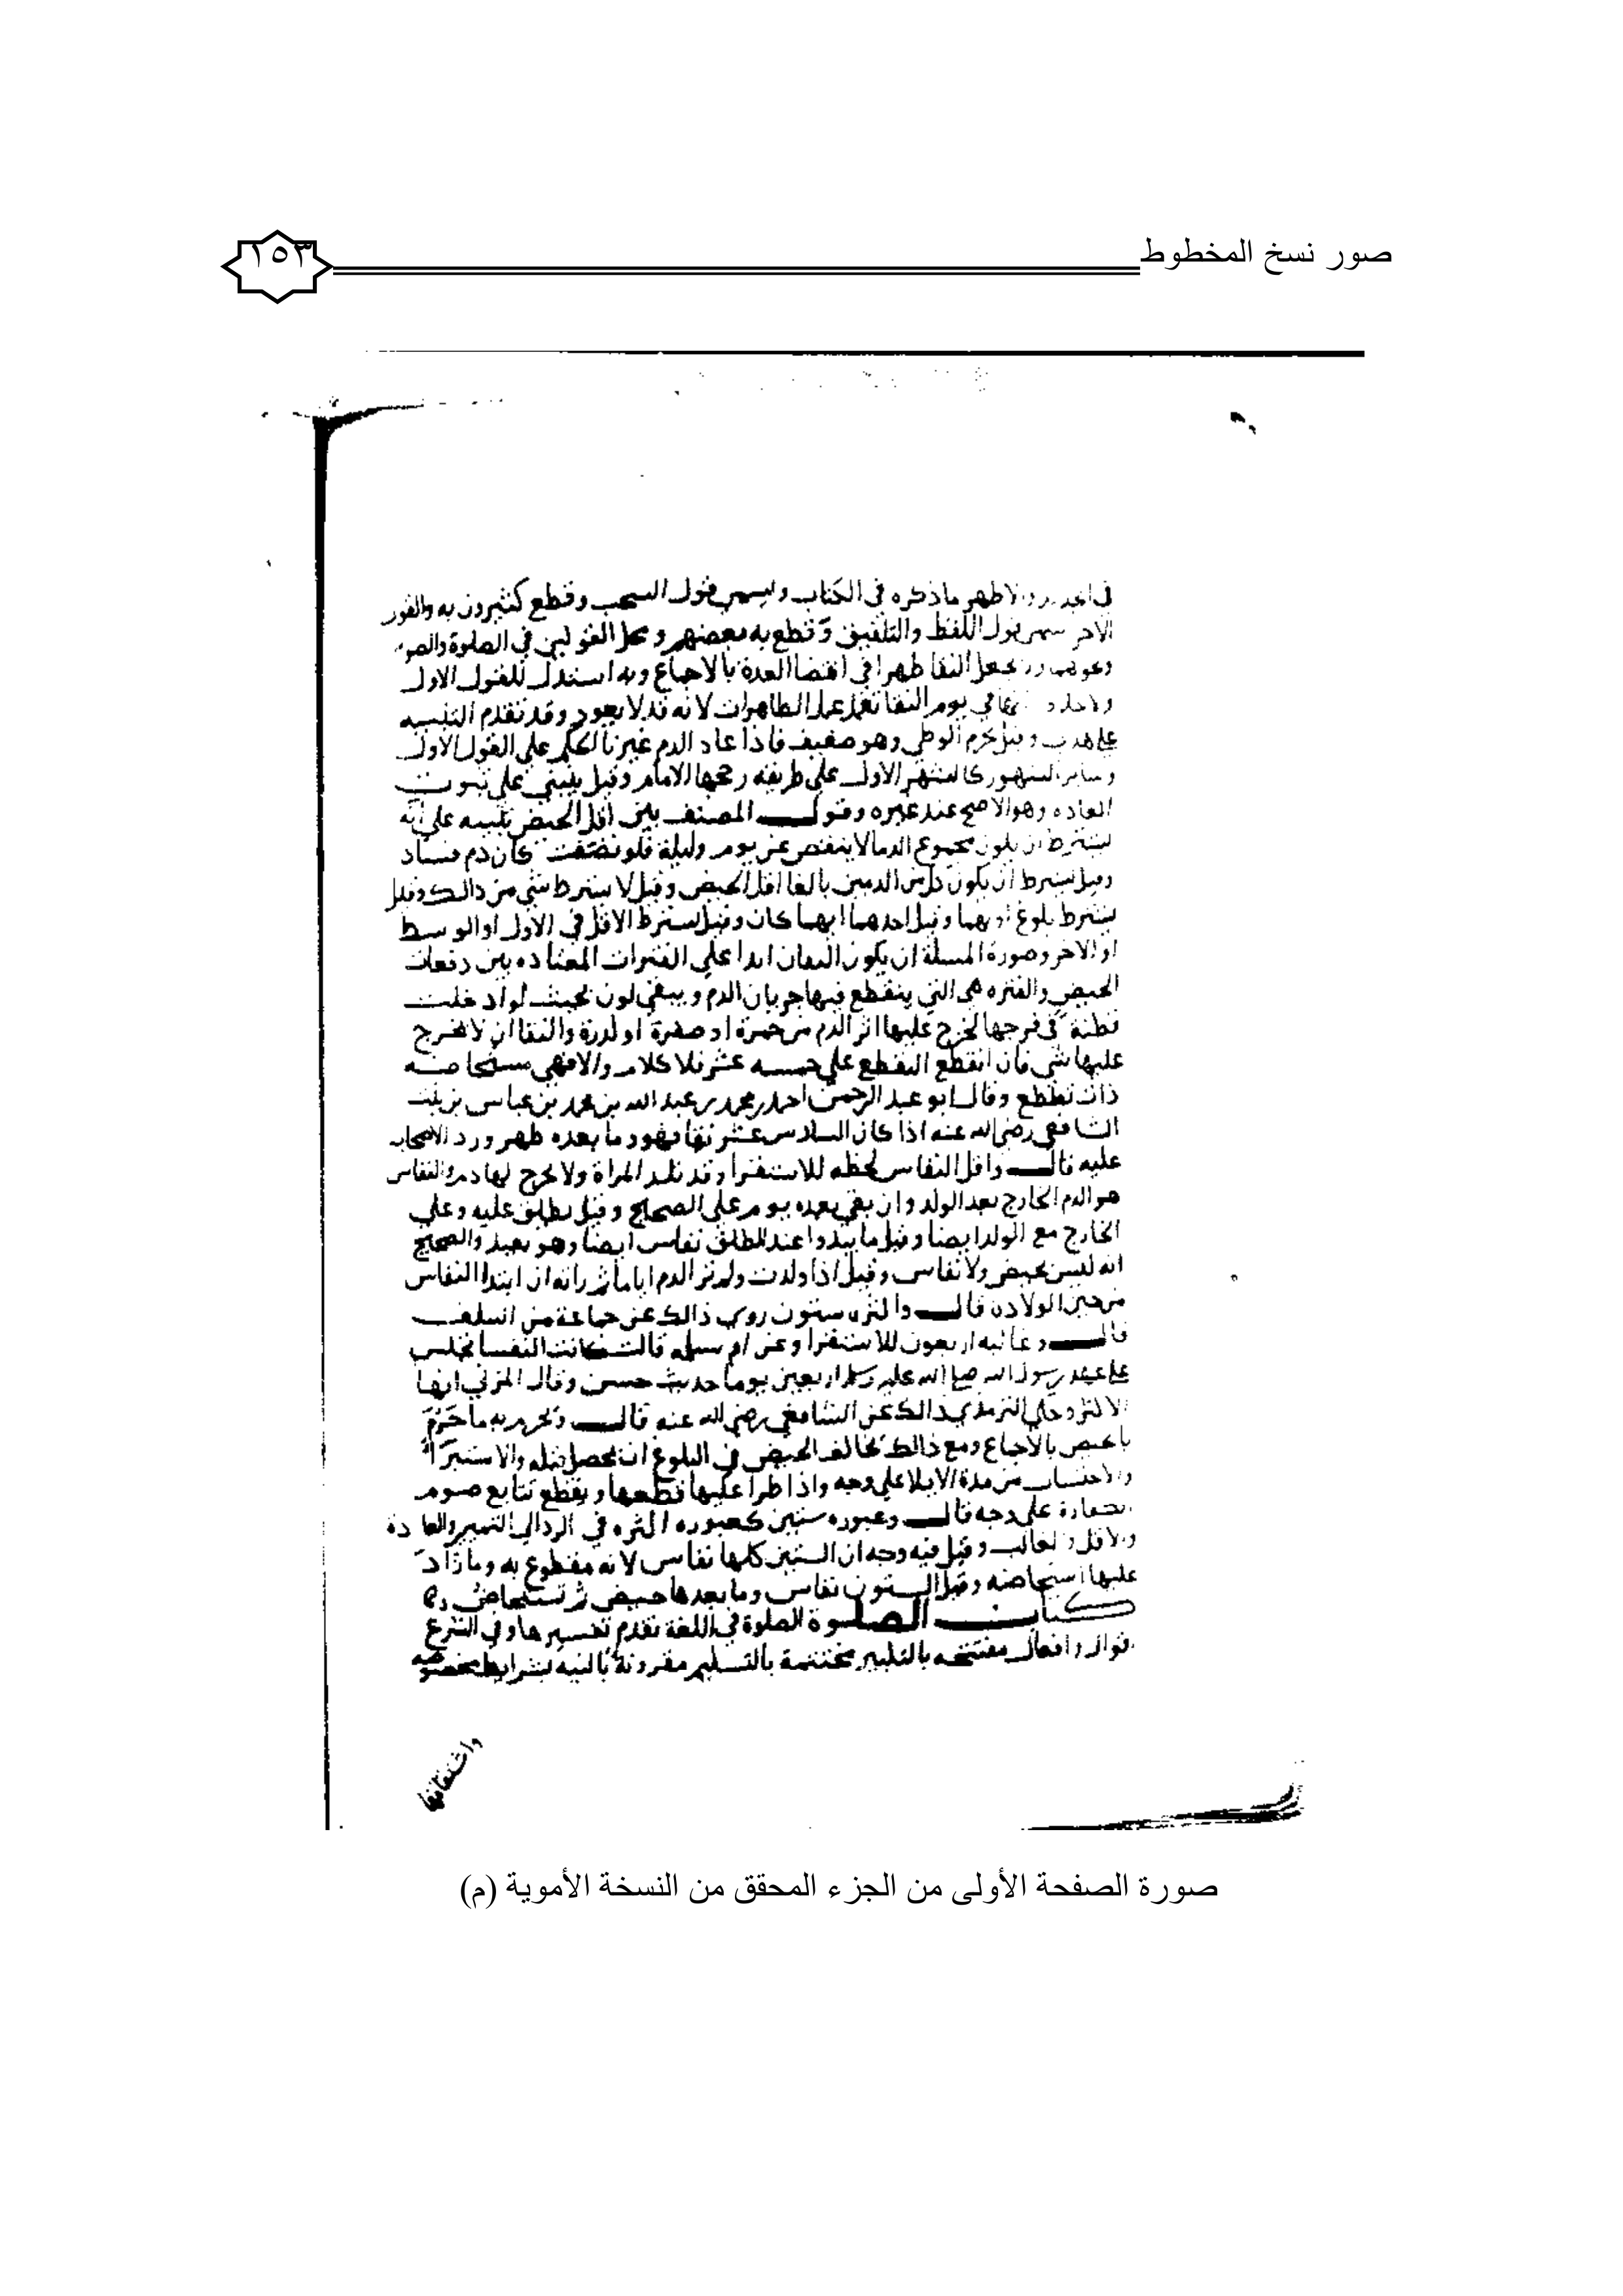 صور نسخ المخطوط
١٥٣
ما ذكره في الكتاب وليسمى قول السحب وقطع كثيرون به والقول
الاخر يسمى قول اللقط والتلفيق وقطع به بعضهم ومحل القولين في الصلوة والصوم
يجعل النقا طهرا في انقضا العدة بالاجماع وبه استدل للقول الاول
في يوم النقا تعمل عمل الطاهرات لانه قد لا يعود وقد تقدم التنبيه
على هذا وقيل يحرم الوطي وهو ضعيف فاذا عاد الدم غيرنا الحكم على القول الاول
وساير الشهور كالشهر الاول على طريقه رجحها الامام وقيل ينبني على ثبوت
العاده وهو الاصح عند غيره وقول المصنف بين اقل الحيض تنبيه على انه
يشترط ان يكون مجموع الدما لا ينقص عن يوم وليلة فلو نقصت كان دم فساد
وقيل يشترط ان يكون كل من الدمين بالغا اقل الحيض وقيل لا يشترط شي من ذالك وقيل
يشترط بلوغ اولهما وقيل احدهما ايهما كان وقيل يشترط الاقل في الاول او الوسط
او الاخر وصورة المسلة ان يكون النقان زايدا على الفترات المعتاده بين دفعات
الحيض والفتره هي التي ينقطع فيها جريان الدم ويبقى لون بحيث لو ادخلت
قطنة في فرجها لخرج عليها اثر الدم من حمرة او صفرة او كدرة والنقا ان لا يخرج
عليها شي فان انقطع التقطع على خمسه عشر فلا كلام والا فهي مستحاضه
ذات تقطع وقال ابو عبد الرحمن احمد بن محمد بن عبد الله بن محمد بن عباس بن بنت
الشافعي رضي الله عنه اذا كان السادس عشر نقا فهو وما بعده طهر ورد الاصحاب
عليه قال واقل النفاس لحظه للاستقرا وقد تلد المراة ولا يخرج لها دم والنفاس
هو الدم الخارج بعد الولد وان بقي بعده يوم على الصحيح وقيل يطلق عليه وعلى
الخارج مع الولد ايضا وقيل ما يبدوا عند الطلق نفاس ايضا وهو بعيد والصحيح
انه ليس بحيض ولا نفاس وقيل اذا ولدت ولم تر الدم اياما ثم راته ان ابتدا النفاس
من حين الولادة قال واكثره ستون روى ذالك عن جماعة من السلف
قال وغالبه اربعون للاستقرا وعن ام سلمه قالت كانت النفسا تجلس
على عهد رسول الله صلى الله عليه وسلم اربعين يوما حديث حسن وقال المزني انها
الاكثر وحكى الترمذي ذالك عن الشافعي رضي الله عنه قال وتحرم به ما حرم
بالحيض بالاجماع ومع ذالك يخالف الحيض في البلوغ ان يحصل قبله والاستبرا
والاحتساب من مدة الايلا على وجه واذا طرا عليها قطعها ويقطع تتابع صوم
الكفارة على وجه قال وعبوره ستين كعبوره اكثره في الرد الى التمييز والعادة
والاقل والغالب وقيل فيه وجه ان الستين كلها نفاس لانه مقطوع به وما زاد
عليها استحاضه وقيل الستون نفاس وما بعدها حيض ثم تستحاض
كتاب الصلوة الصلوة في اللغة تقدم تفسيرها وفي الشرع
اقوال وافعال مفتتحه بالتكبير مختتمة بالتسليم مقرونة بالنية بشرايط مخصوصه
واشتقاقها
صورة الصفحة الأولى من الجزء المحقق من النسخة الأموية (م)